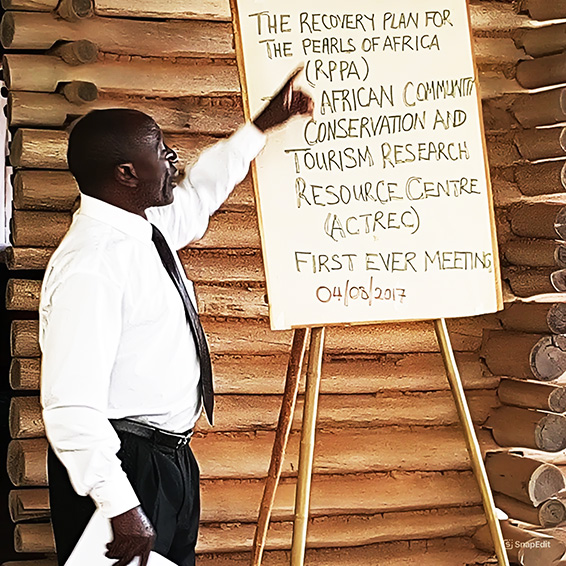 THE RECOVERY PLAN FOR
THE PEARLS OF AFRICA
(RPPA)
AFRICAN COMMUNITY
CONSERVATION AND
TOURISM RESEARCH
RESOURCE CENTRE
(ACTREC)
FIRST EVER MEETING
04/08/2017
SnapEdit